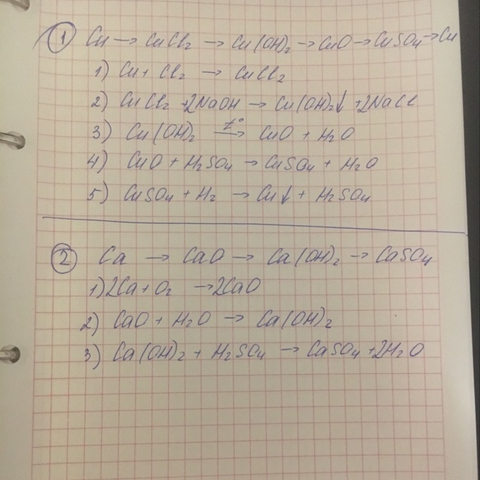 ① Cu → CuCl₂ → Cu(OH)₂ → CuO → CuSO₄ → Cu
1) Cu + Cl₂ → CuCl₂
2) CuCl₂ + 2NaOH → Cu(OH)₂↓ + 2NaCl
3) Cu(OH)₂ —t°→ CuO + H₂O
4) CuO + H₂SO₄ → CuSO₄ + H₂O
5) CuSO₄ + H₂ → Cu↓ + H₂SO₄
② Ca → CaO → Ca(OH)₂ → CaSO₄
1) 2Ca + O₂ → 2CaO
2) CaO + H₂O → Ca(OH)₂
3) Ca(OH)₂ + H₂SO₄ → CaSO₄ + 2H₂O